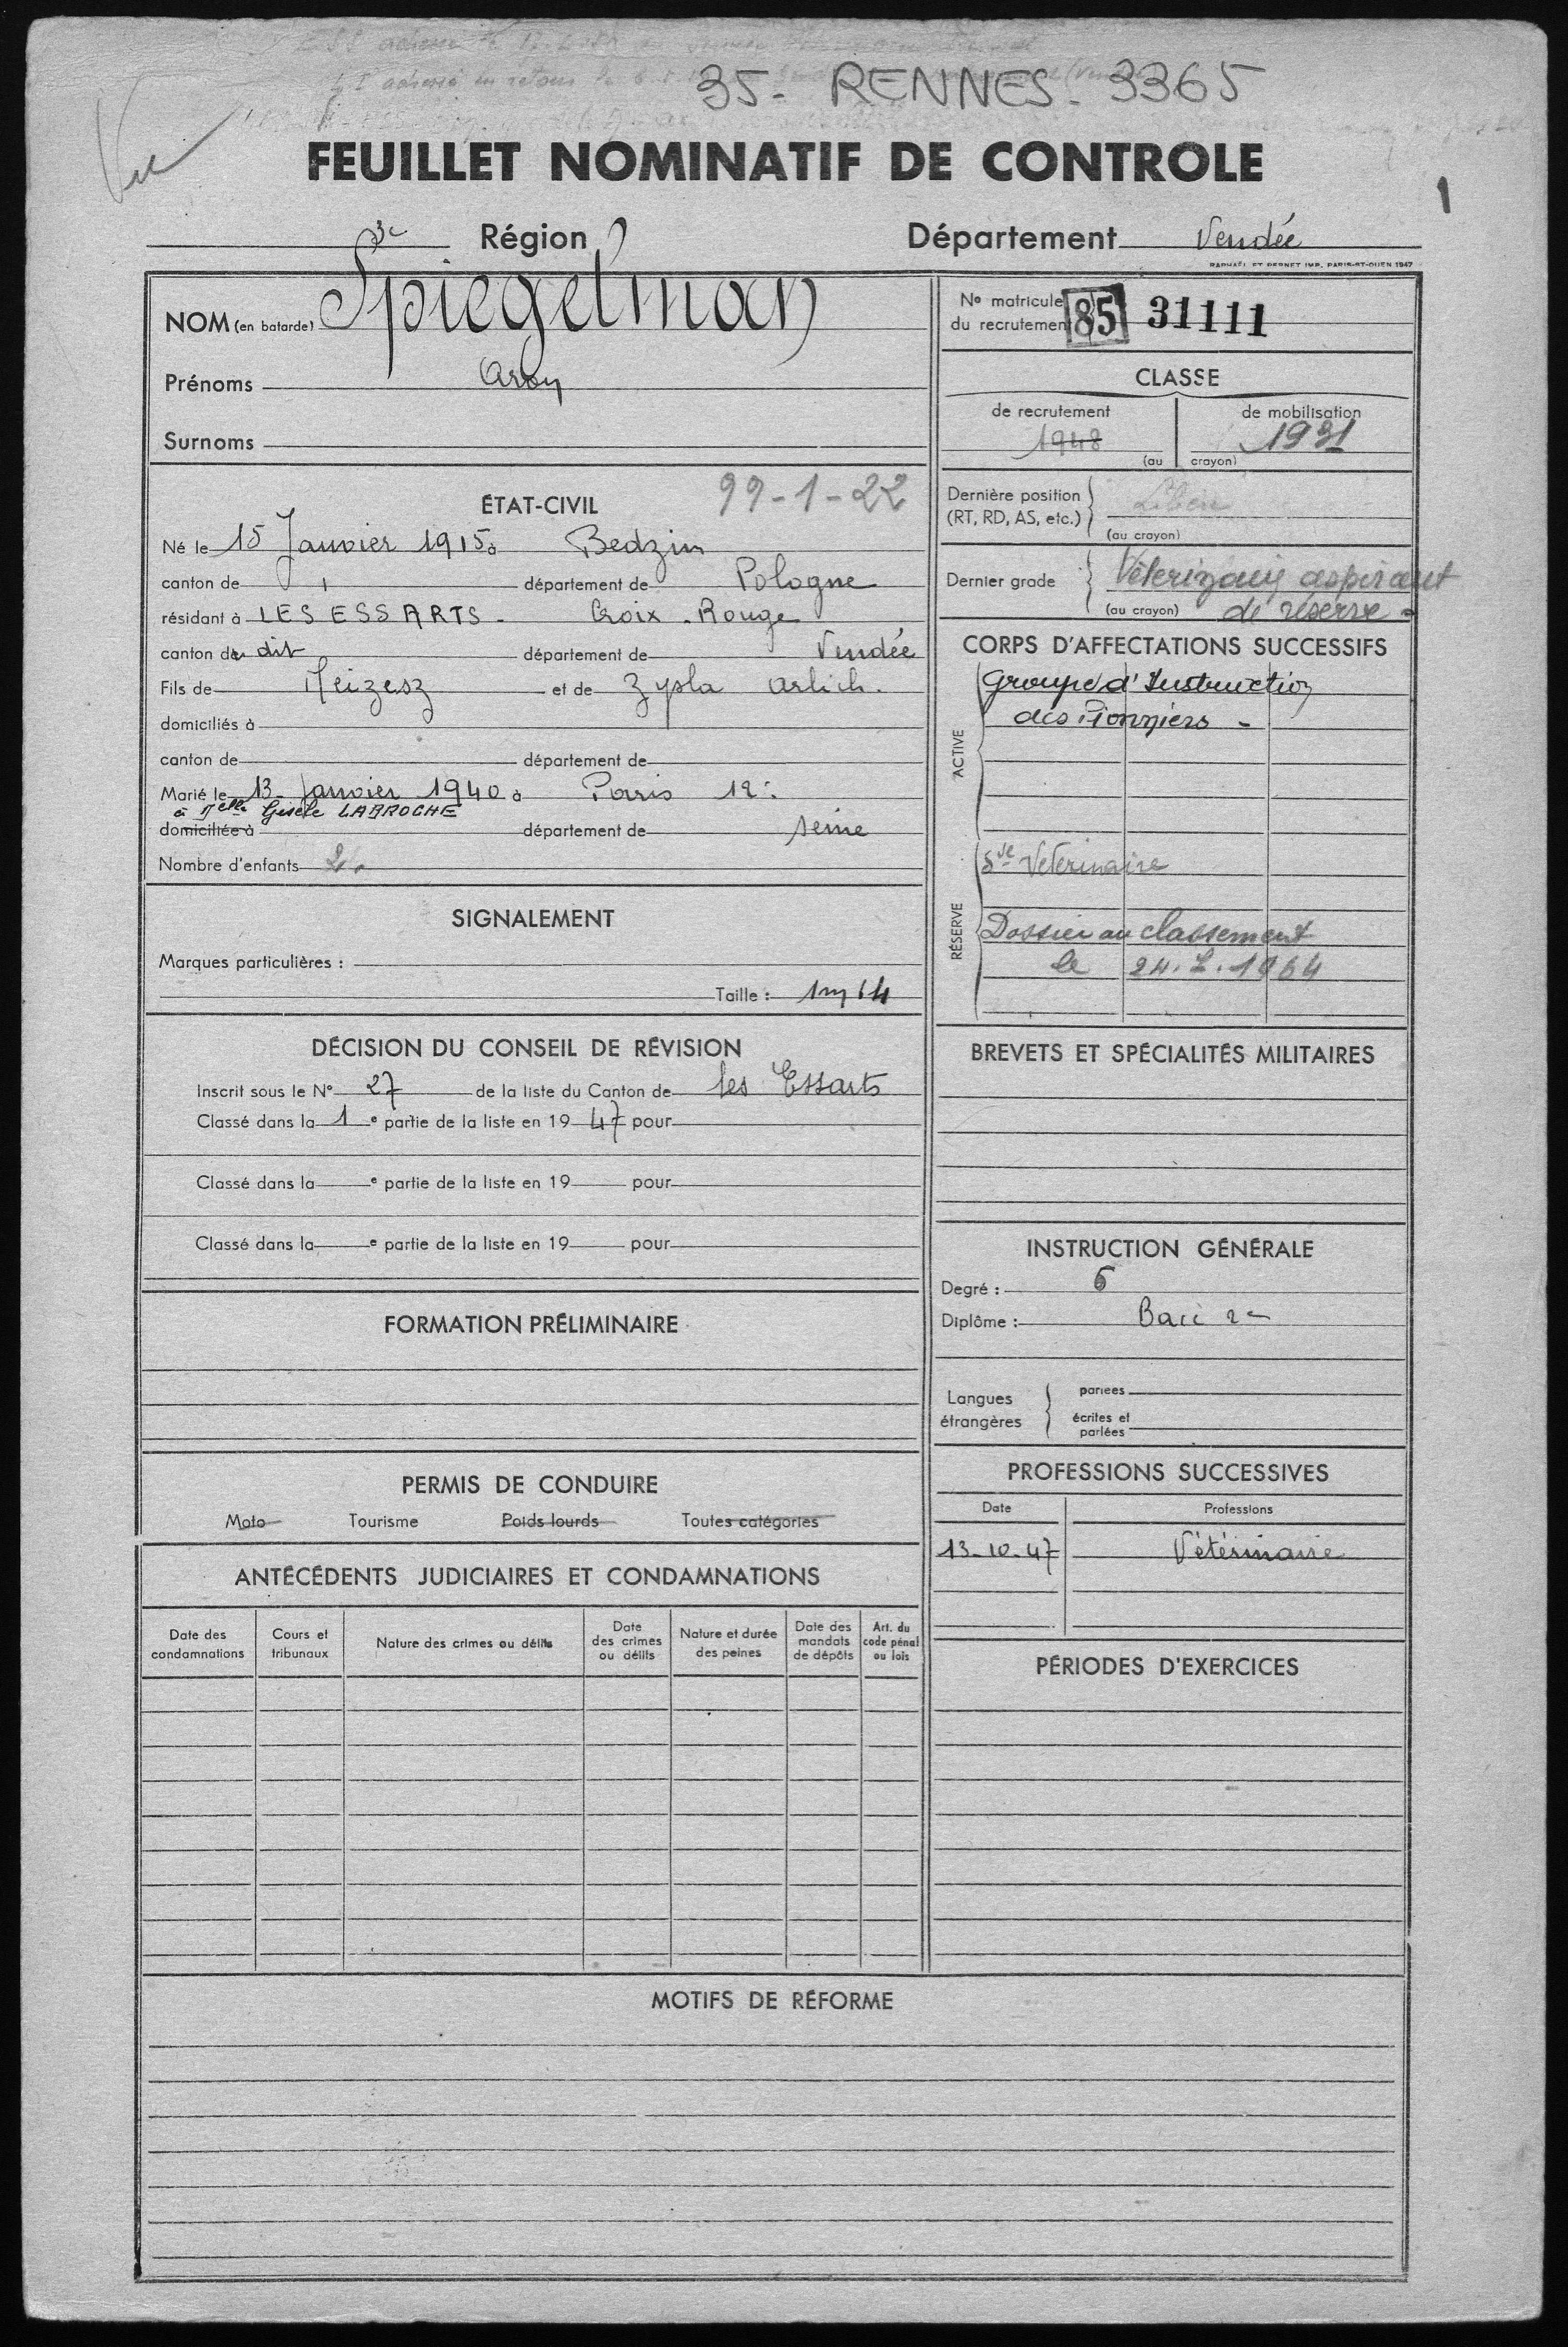 35 - RENNES - 3365
Vu
FEUILLET NOMINATIF DE CONTROLE
1
3e Région
Département Vendée
RAPHAËL ET PERNET IMP. PARIS-ST-OUEN 1947
NOM (en batarde) Spiegelman
Prénoms Aron
Surnoms
ÉTAT-CIVIL 99-1-22
Né le 15 Janvier 1915 à Bedzin
canton de département de Pologne
résidant à LES ESSARTS - Croix-Rouge
canton du dit département de Vendée
Fils de et de Zysla
domiciliés à
canton de département de
Marié le 13 Janvier 1940 à Paris 12e
à Melle Gisèle LABROCHE
domiciliée à département de Seine
Nombre d'enfants 2
SIGNALEMENT
Marques particulières :
Taille : 1m64
DÉCISION DU CONSEIL DE RÉVISION
Inscrit sous le N° 27 de la liste du Canton de les Essarts
Classé dans la 1 e partie de la liste en 19 47 pour
Classé dans la e partie de la liste en 19 pour
Classé dans la e partie de la liste en 19 pour
FORMATION PRÉLIMINAIRE
PERMIS DE CONDUIRE
Moto Tourisme Poids lourds Toutes catégories
ANTÉCÉDENTS JUDICIAIRES ET CONDAMNATIONS
Date des condamnations
Cours et tribunaux
Nature des crimes ou délits
Date des crimes ou délits
Nature et durée des peines
Date des mandats de dépôts
Art. du code pénal ou lois
N° matricule
du recrutement 85 31111
CLASSE
de recrutement de mobilisation
1948 1931
(au crayon)
Dernière position
(RT, RD, AS, etc.)
(au crayon)
Dernier grade Vétérinaire aspirant
(au crayon) de réserve -
CORPS D'AFFECTATIONS SUCCESSIFS
ACTIVE
Groupe d'Instruction
des Pionniers -
RÉSERVE
Sve Vétérinaire
Dossier au classement
le 24.2.1964
BREVETS ET SPÉCIALITÉS MILITAIRES
INSTRUCTION GÉNÉRALE
Degré : 6
Diplôme : Bacc 2e
Langues étrangères
parlées
écrites et parlées
PROFESSIONS SUCCESSIVES
Date Professions
13-10-47 Vétérinaire
PÉRIODES D'EXERCICES
MOTIFS DE RÉFORME